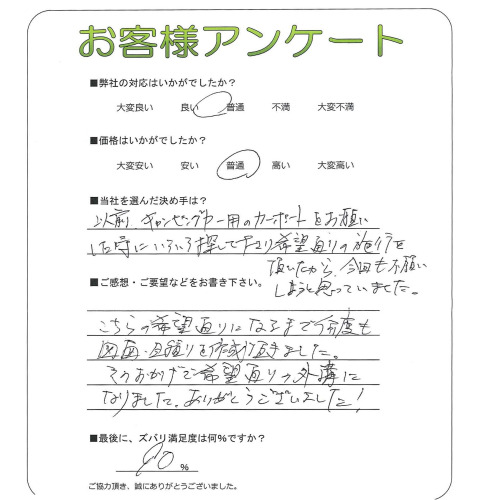 お客様アンケート
■弊社の対応はいかがでしたか？
大変良い 良い 普通 不満 大変不満
■価格はいかがでしたか？
大変安い 安い 普通 高い 大変高い
■当社を選んだ決め手は？
以前、キャンピングカー用のカーポートをお願い
した時にいろいろ探して下さり希望通りの施行を
頂いたから、今回も不願い
しようと思っていました。
■ご感想・ご要望などをお書き下さい。
こちらの希望通りになるまで何度も
図面・見積りを作成頂きました。
そのおかげで希望通りの外構に
なりました。ありがとうございました！
■最後に、ズバリ満足度は何％ですか？
90 %
ご協力頂き、誠にありがとうございました。